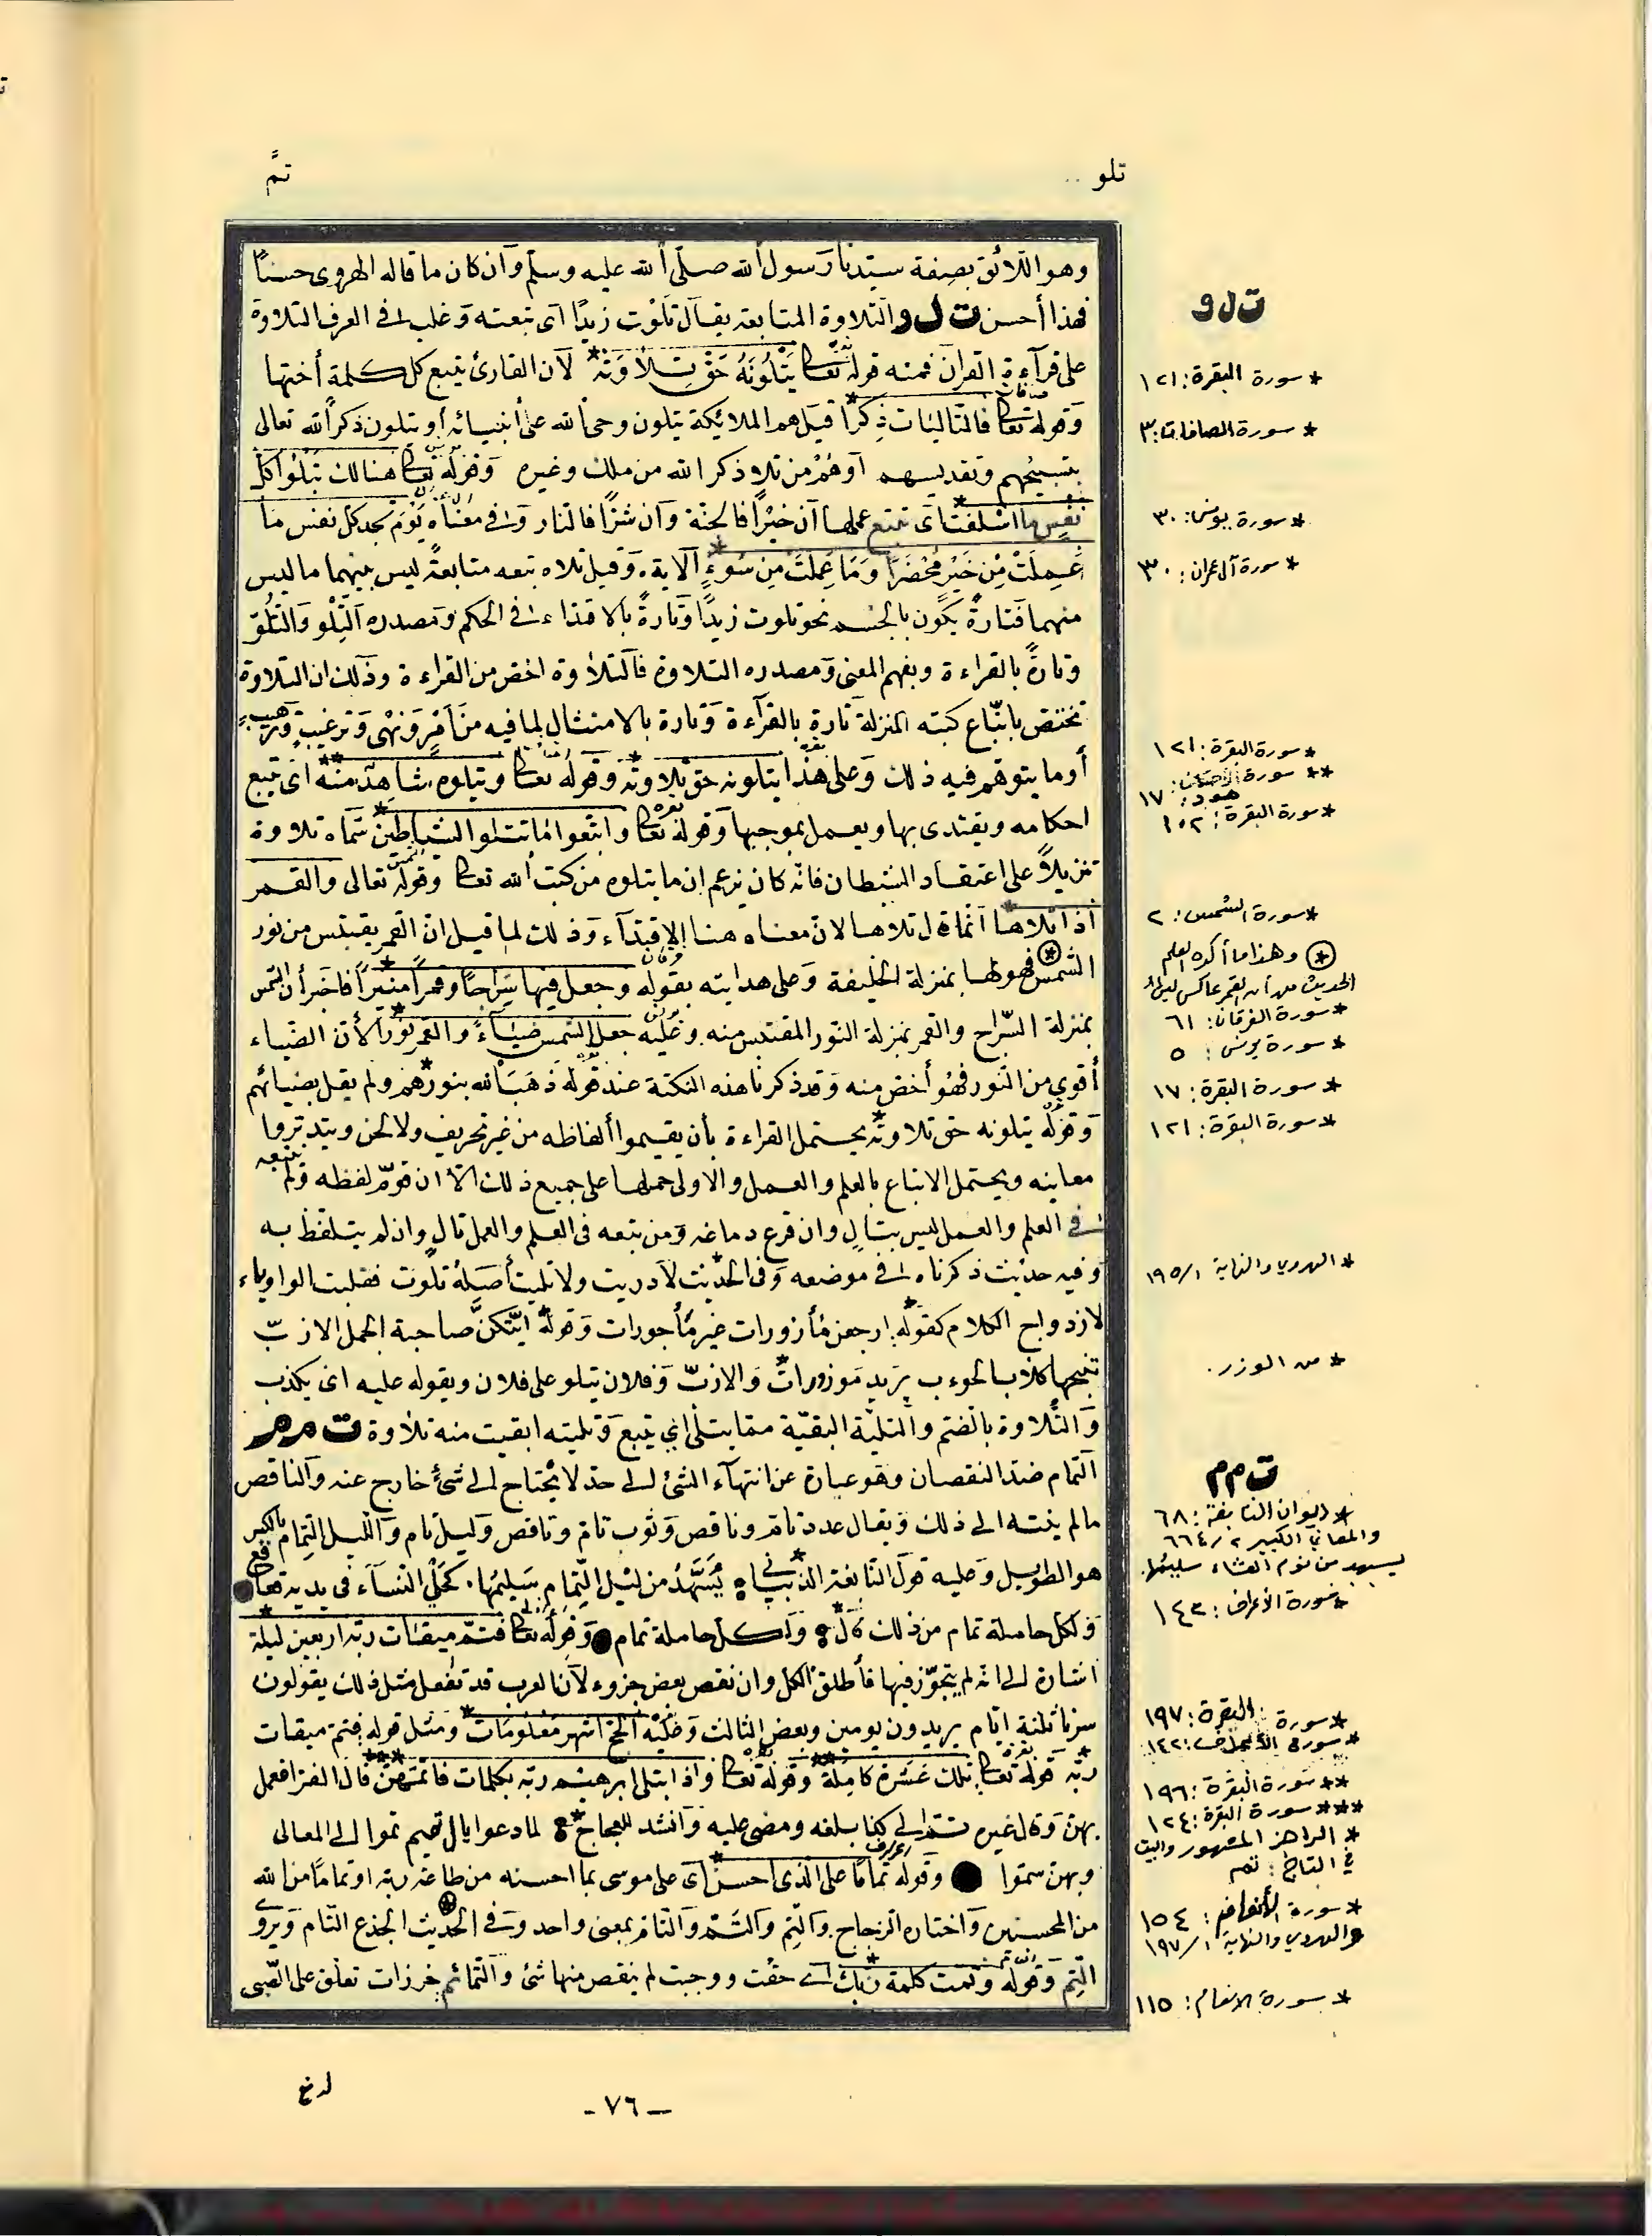 تلو
تمّ
وهو اللائق بصفة سيدنا رسول الله صلى الله عليه وسلم وان كان ما قاله الهروى حسنًا
فهذا أحسن ت ل و التلاوة المتابعة يقال تَلَوْت زيدًا اى تبعته وغلب فى العرف التلاوة
على قرآءة القرآن فمنه قوله تعا يَتْلُونَهُ حَقَّ تِلاوَتِهِ * لان القارئ يتبع كل كلمة أختها
وقوله تعا فالتاليات ذِكرًا * قيل هم الملائكة يتلون وحى الله على أنبيائه أو يتلون ذكر الله تعالى
بتسبيحهم وتقديسهم اوهُم من تلا ذكر الله من ملك وغيره وقوله تعا هنالك تَتْلُوا كلّ
نفسٍ ما اسْلفت * اى تتبع عملها ان خيرًا فالجنة وان شرًّا فالنار وفى معناه يَوْمَ تجد كل نفس ما
عَمِلَتْ مِن خَيْرٍ مُحْضَرًا وَمَا عَمِلَتْ مِن سُوءٍ * الآية وقيل تلاه تبعه متابعةً ليس بينهما ما ليس
منهما فتارةً يكون بالجسم نحو تلوت زيدًا وتارةً بالاقتداء فى الحكم ومصدره التِّلْو والتُلُوّ
وتارةً بالقراءة وبفهم المعنى ومصدره التلاوة فالتلاوة اخص من القراءة وذلك ان التلاوة
تختص باتّباع كتبه المنزلة تارة بالقرآءة وتارة بالامتثال لما فيه من اَمْرٍ ونَهْىٍ وترغيبٍ وترهيبٍ
أو ما يتوهم فيه ذلك وعلى هذا يتلونه حق تِلاوته * وقوله تعا ويتلوه شاهد منه ** اى تَتَبع
احكامه ويقتدى بها ويعمل بموجبها وقوله تعا واتبعوا ما تتلوا الشياطين * سمّاه تلاوة
تنزيلاً على اعتقاد الشيطان فانه كان يزعم ان ما يتلوه من كتب الله تعا وقوله تعالى والقمر
اذا تلاها * انما قال تلاها لان معناه هنا الاقتدآء وذلك لما قيل ان القمر يقتبس من نور
الشمس فهو لها بمنزلة الخليفة وعلى هذا نبّه بقوله وجعل فيها سِرَاجًا وقمرًا منيرًا * فاخبر أن الشمس
بمنزلة السّراج والقمر بمنزلة النّور المقتبس منه وعليه جعل الشمس ضيَاءً والقمر نورًا * لأن الضياء
أقوى من النّور فهو أخص منه وقد ذكرنا هذه النكتة عند قوله ذهَبَ الله بنورهم * ولم يقل بضيائهم
وقوله يتلونه حق تلاوته * يحتمل القراءة بأن يقيموا ألفاظه من غير تحريف ولا لحن ويتدبّروا
معانيه ويحتمل الاتباع بالعلم والعمل والاولى حملها على جميع ذلك الا ان قوّم لفظه ولم يتبعه
فى العلم والعمل ليس بتالٍ وان قرع دماغه ومن تبعه فى العلم والعمل تالٍ وان لم يتلفظ به
وفيه حديث ذكرناه فى موضعه وفى الحديث لا دريت ولا تليت * أصله تلوت فقلبت الواو ياء
لازدواج الكلام كقوله ارجعن مأزورات غير مأجورات وقوله ايّتكنّ صاحبة الجمل الازبّ
تنبحها كلاب الحوءب يريد موزورات * والازبّ وفلان يتلو على فلان ويقوله عليه اى يكذب
والتُّلاوة بالضم والتليّة البقيّة مما يتلى اى يتبع وتليته ابقيت منه تلاوة ت م م
التمام ضد النقصان وهو عبارة عن انتهآء الشئ الى حد لا يحتاج الى شئ خارج عنه والناقص
ما لم ينته الى ذلك ويقال عدد تام وناقص وثوب تام وناقص وليل تام والليل التِمام بالكسر
هو الطويل وعليه قول النابغة الذبيانى * يُسَهَّدُ من ليْل التِّمام سَليمُها . كحَلْىِ النسآء فى يديه قعاقع
ولكل حاملة تمام من ذلك قال * ولكل حاملة تمام وقوله تعا فتمّ ميقات ربّه اربعين ليلة *
اشارة الى انه لم يتجوّز فيها فأطلق الكل وان نقص بعض جزوء لان العرب قد تفعل مثل ذلك يقولون
سرنا ثلثة ايّام يريدون يومين وبعض الثالث وعليه الحج اشهر معلومات * ومثل قوله فتم ميقات
ربّه * قوله تعا تلك عَشرَة كامِلَة ** وقوله تعا واذ ابتلى ابرهيم ربّه بكلمات فاتمّهنّ *** قال الفرا فعمل
بهنّ وقال غيره تمّ الى كذا بلغه ومضى عليه وانشد للعجاج * لما دعوا يال تميم تموا الى المعالى
وبهن سموا وقوله تمامًا على الذى احسن * اى على موسى بما احسنه من طاعة ربه او تمامًا من الله
من المحسنين واختاره الزجاج والتِم والتَّم والتام بمعنى واحد وفى الحديث الجذع التام ويروى
التِم وقوله وتمت كلمة ربك * اى حقت ووجبت لم ينقص منها شئ والتمائم خرزات تعلق على الصّبى
ت ل و
* سورة البقرة: ١٢١
* سورة الصافات: ٣
* سورة يونس: ٣٠
* سورة آل عمران: ٣٠
* سورة البقرة: ١٢١
** سورة هود: ١٧
* سورة البقرة: ١٠٢
* سورة الشمس: ٢
(*) وهذا ما أكده العلم
الحديث من أن القمر عاكس
* سورة الفرقان: ٦١
* سورة يونس: ٥
* سورة البقرة: ١٧
* سورة البقرة: ١٢١
* الهروي والنهاية ١/١٩٥
* من الوزر.
ت م م
* ديوان النابغة: ٦٨
والمعاني الكبير ٢/٦٦٤
يسهد من نوم العشاء سليمها.
* سورة الأعراف: ١٤٢
* سورة البقرة: ١٩٧
* سورة الأعراف: ١٤٢
** سورة البقرة: ١٩٦
*** سورة البقرة: ١٢٤
* الراجز المشهور والبيت
في التاج: تمم
* سورة الأنعام: ١٥٤
والهروي والنهاية ١/١٩٧
* سورة الانعام: ١١٥
- ٧٦ -